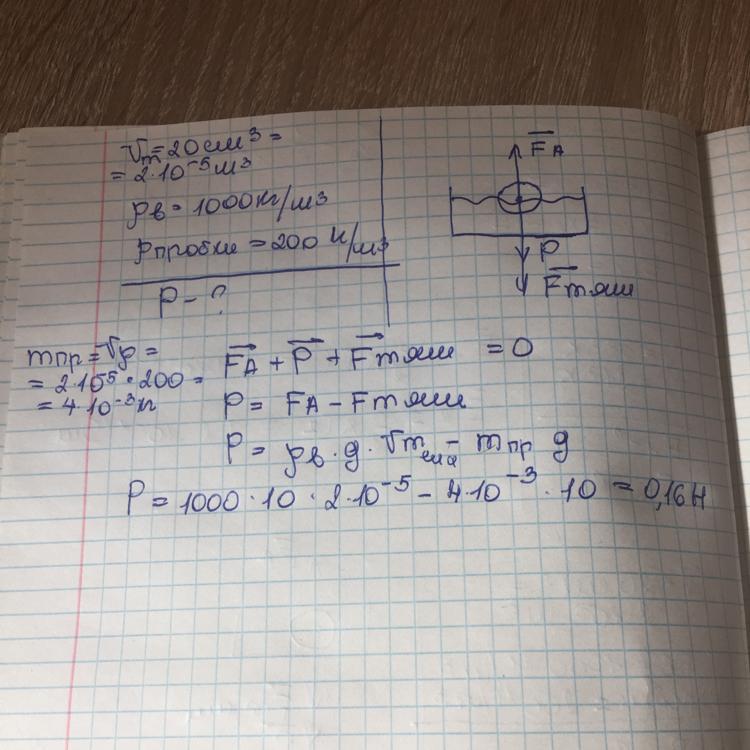 Vт = 20 см³ =
= 2·10⁻⁵ м³
ρв = 1000 кг/м³
ρпробки = 200 К/м³
P - ?
FА
P
Fтяж
mпр = Vρ =
= 2·10⁵·200 =
= 4·10⁻³ кг
FА + P + Fтяж = 0
P = FА - Fтяж
P = ρв·g·Vтела - mпр g
P = 1000·10·2·10⁻⁵ - 4·10⁻³·10 = 0,16 Н